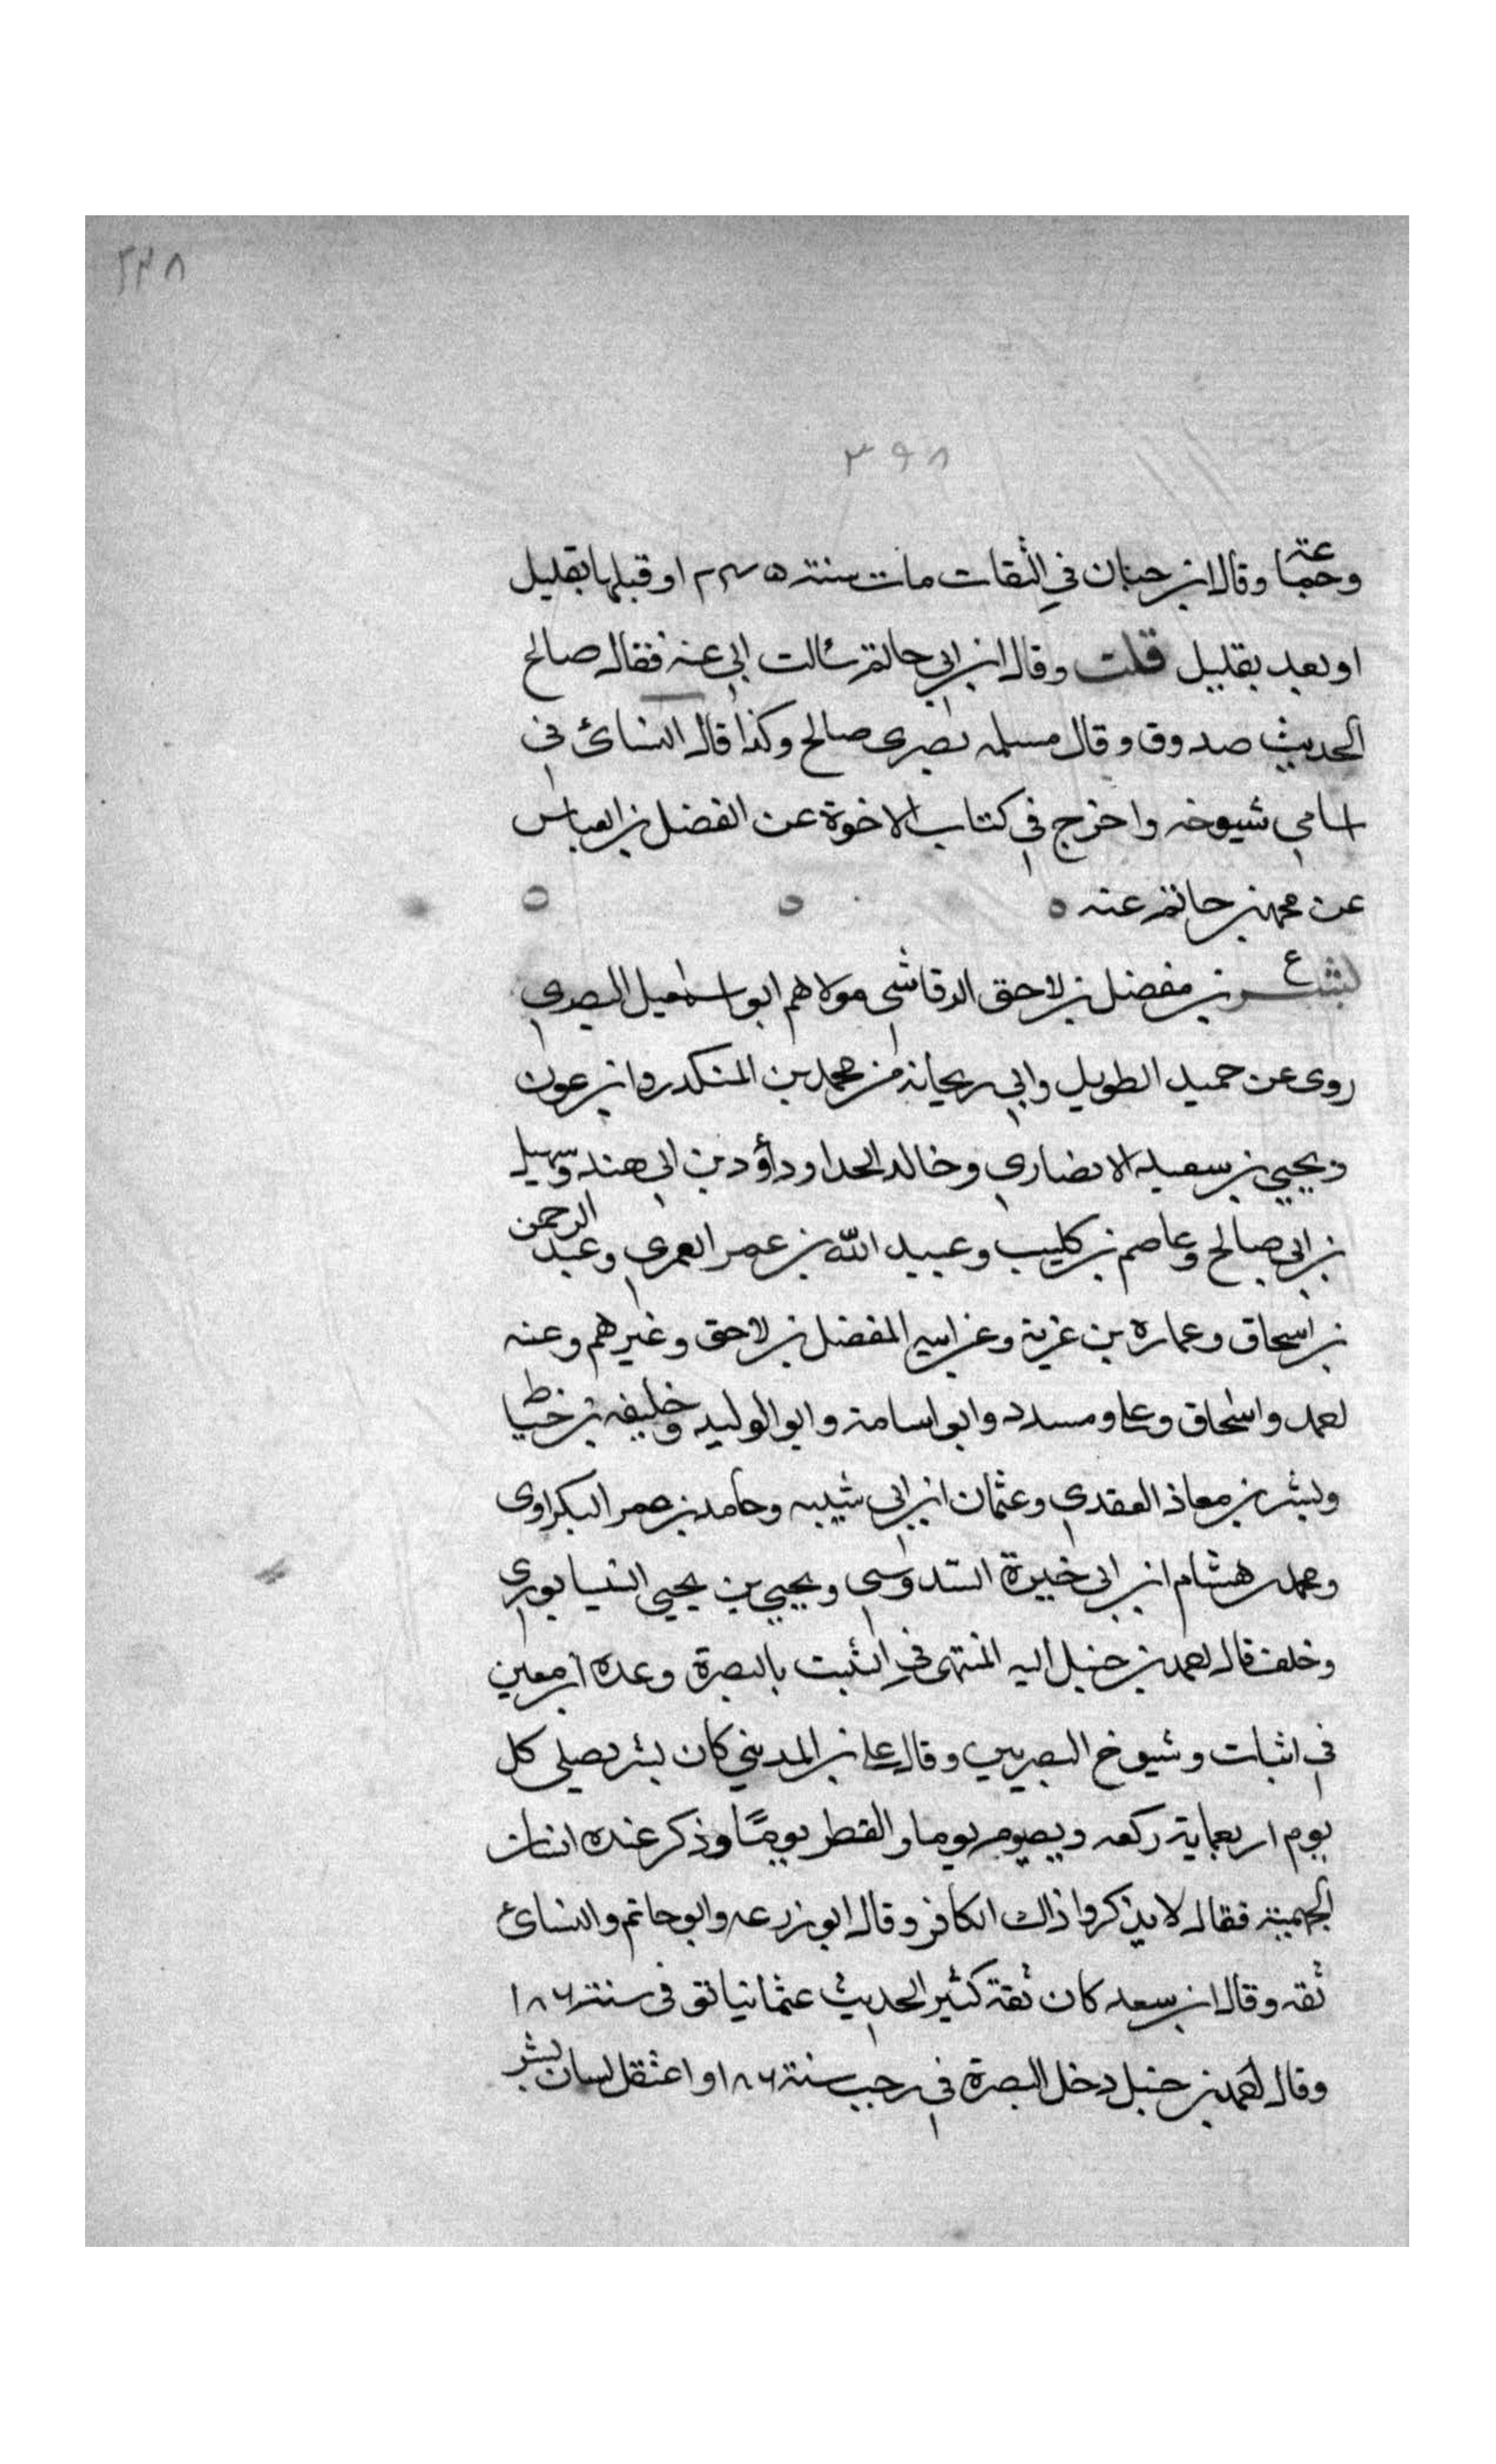 ٢٣٨
٣٩٨
وجماعة وقال ابن حبان في الثقات مات سنة ٢٤٥ او قبلها بقليل
او بعد بقليل قلت وقال ابن ابي حاتم سالت ابي عنه فقال صالح
الحديث صدوق وقال مسلمه بصرى صالح وكذا قال النسائ في
اسامي شيوخه واخرج في كتاب الاخوة عن الفضل بن العباس
عن محمد بن حاتم عنه
ع
بشر بن مفضل بن لاحق الرقاشي مولاهم ابو اسمعيل البصري
روى عن حميد الطويل وابي ريحانه محمد بن المنكدر وابن عون
ويحيي بن سعيد الانصاري وخالد الحدا وداؤد بن ابي هند وسهيل
بن ابي صالح وعاصم بن كليب وعبيد الله بن عمر العمري وعبد الرحمن
بن اسحاق وعماره بن غزية وعن ابيه المفضل بن لاحق وغيرهم وعنه
احمد واسحاق وعلي ومسدد وابو اسامة وابو الوليد وخليفه بن خياط
وبشر بن معاذ العقدي وعثمان ابن ابي شيبه وحامد بن عمر البكراوى
ومحمد بن هشام ابن ابي خيرة السدوسي ويحيي بن يحيي النيسابوري
وخلف قال احمد بن حنبل اليه المنتهى في التثبت بالبصرة وعده ابن معين
في اثبات وشيوخ البصريين وقال علي بن المديني كان بشر يصلي كل
يوم اربعماية ركعه ويصوم يوما والفطر يومًا وذكر عنده انسان
الجهمية فقال لا يذكروا ذاك الكافر وقال ابو زرعه وابو حاتم والنسائ
ثقه وقال ابن سعد كان ثقة كثير الحديث عثمانيا توفى سنة ١٨٦
وقال احمد بن حنبل دخل البصرة في رجب سنة ١٨٦ و اعتقل لسان بشر